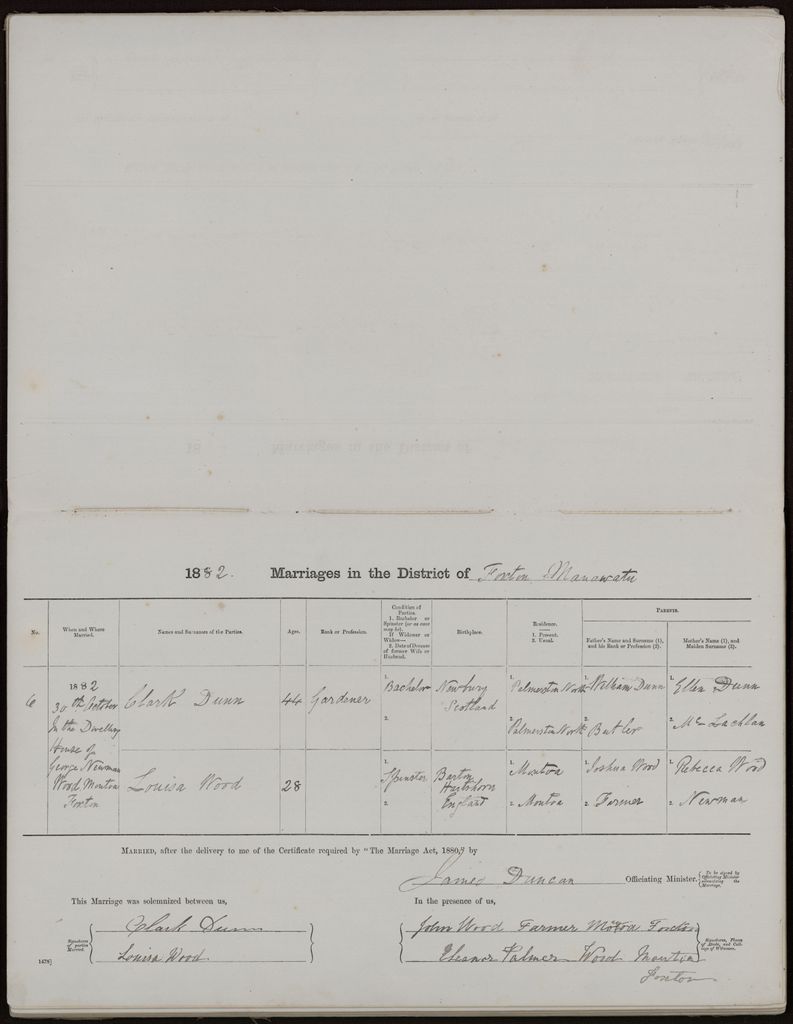 1882. Marriages in the District of Foxton Manawatu
No.
When and Where Married.
Names and Surnames of the Parties.
Ages.
Rank or Profession.
Condition of Parties.
1. Bachelor or Spinster (or as case may be).
If Widower or Widow—
2. Date of Decease of former Wife or Husband.
Birthplace.
Residence.
1. Present.
2. Usual.
PARENTS.
Father's Name and Surname (1), and his Rank or Profession (2).
Mother's Name (1), and Maiden Surname (2).
6
1882
30th October
In the Dwelling
House of
George Newman
Wood Moutoa
Foxton
Clark Dunn
44
Gardener
1. Bachelor
2.
Newbury
Scotland
1. Palmerston North
2. Palmerston North
1. William Dunn
2. Butler
1. Ellen Dunn
2. McLachlan
Louisa Wood
28
1. Spinster
2.
Barton
Hartshorn
England
1. Moutoa
2. Moutoa
1. Joshua Wood
2. Farmer
1. Rebecca Wood
2. Newman
MARRIED, after the delivery to me of the Certificate required by "The Marriage Act, 1880," by
James Duncan Officiating Minister. {To be signed by Officiating Minister solemnizing the Marriage.
This Marriage was solemnized between us,
In the presence of us,
Signatures of parties Married.
Clark Dunn
Louisa Wood
John Wood Farmer Motoa Foxton
Eleanor Palmer Wood Moutoa
Foxton
Signatures, Places of Abode, and Callings of Witnesses.
1478]